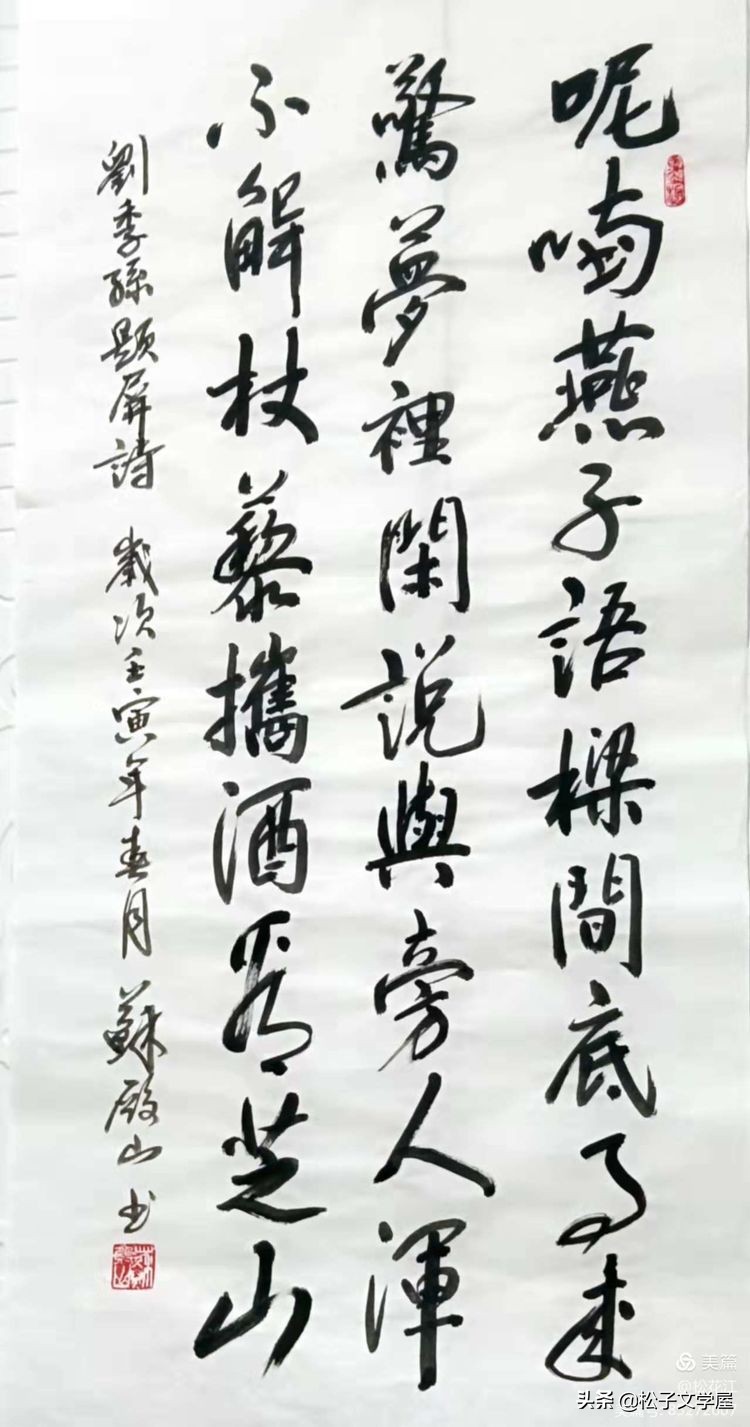 呢喃燕子語樑間底事来
驚夢裡閑説與旁人渾
不解杖藜攜酒看芝山
劉季孫題屏詩 歲次壬寅年春月 蘇殿山书
美篇
@松花江
头条 @松子文学屋